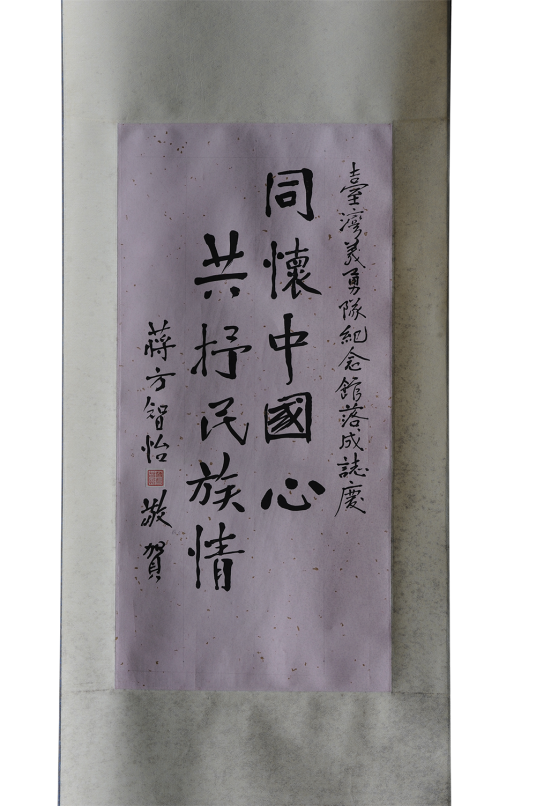 臺灣義勇隊紀念館落成誌慶
同懷中國心
共抒民族情
蔣方智怡 敬賀